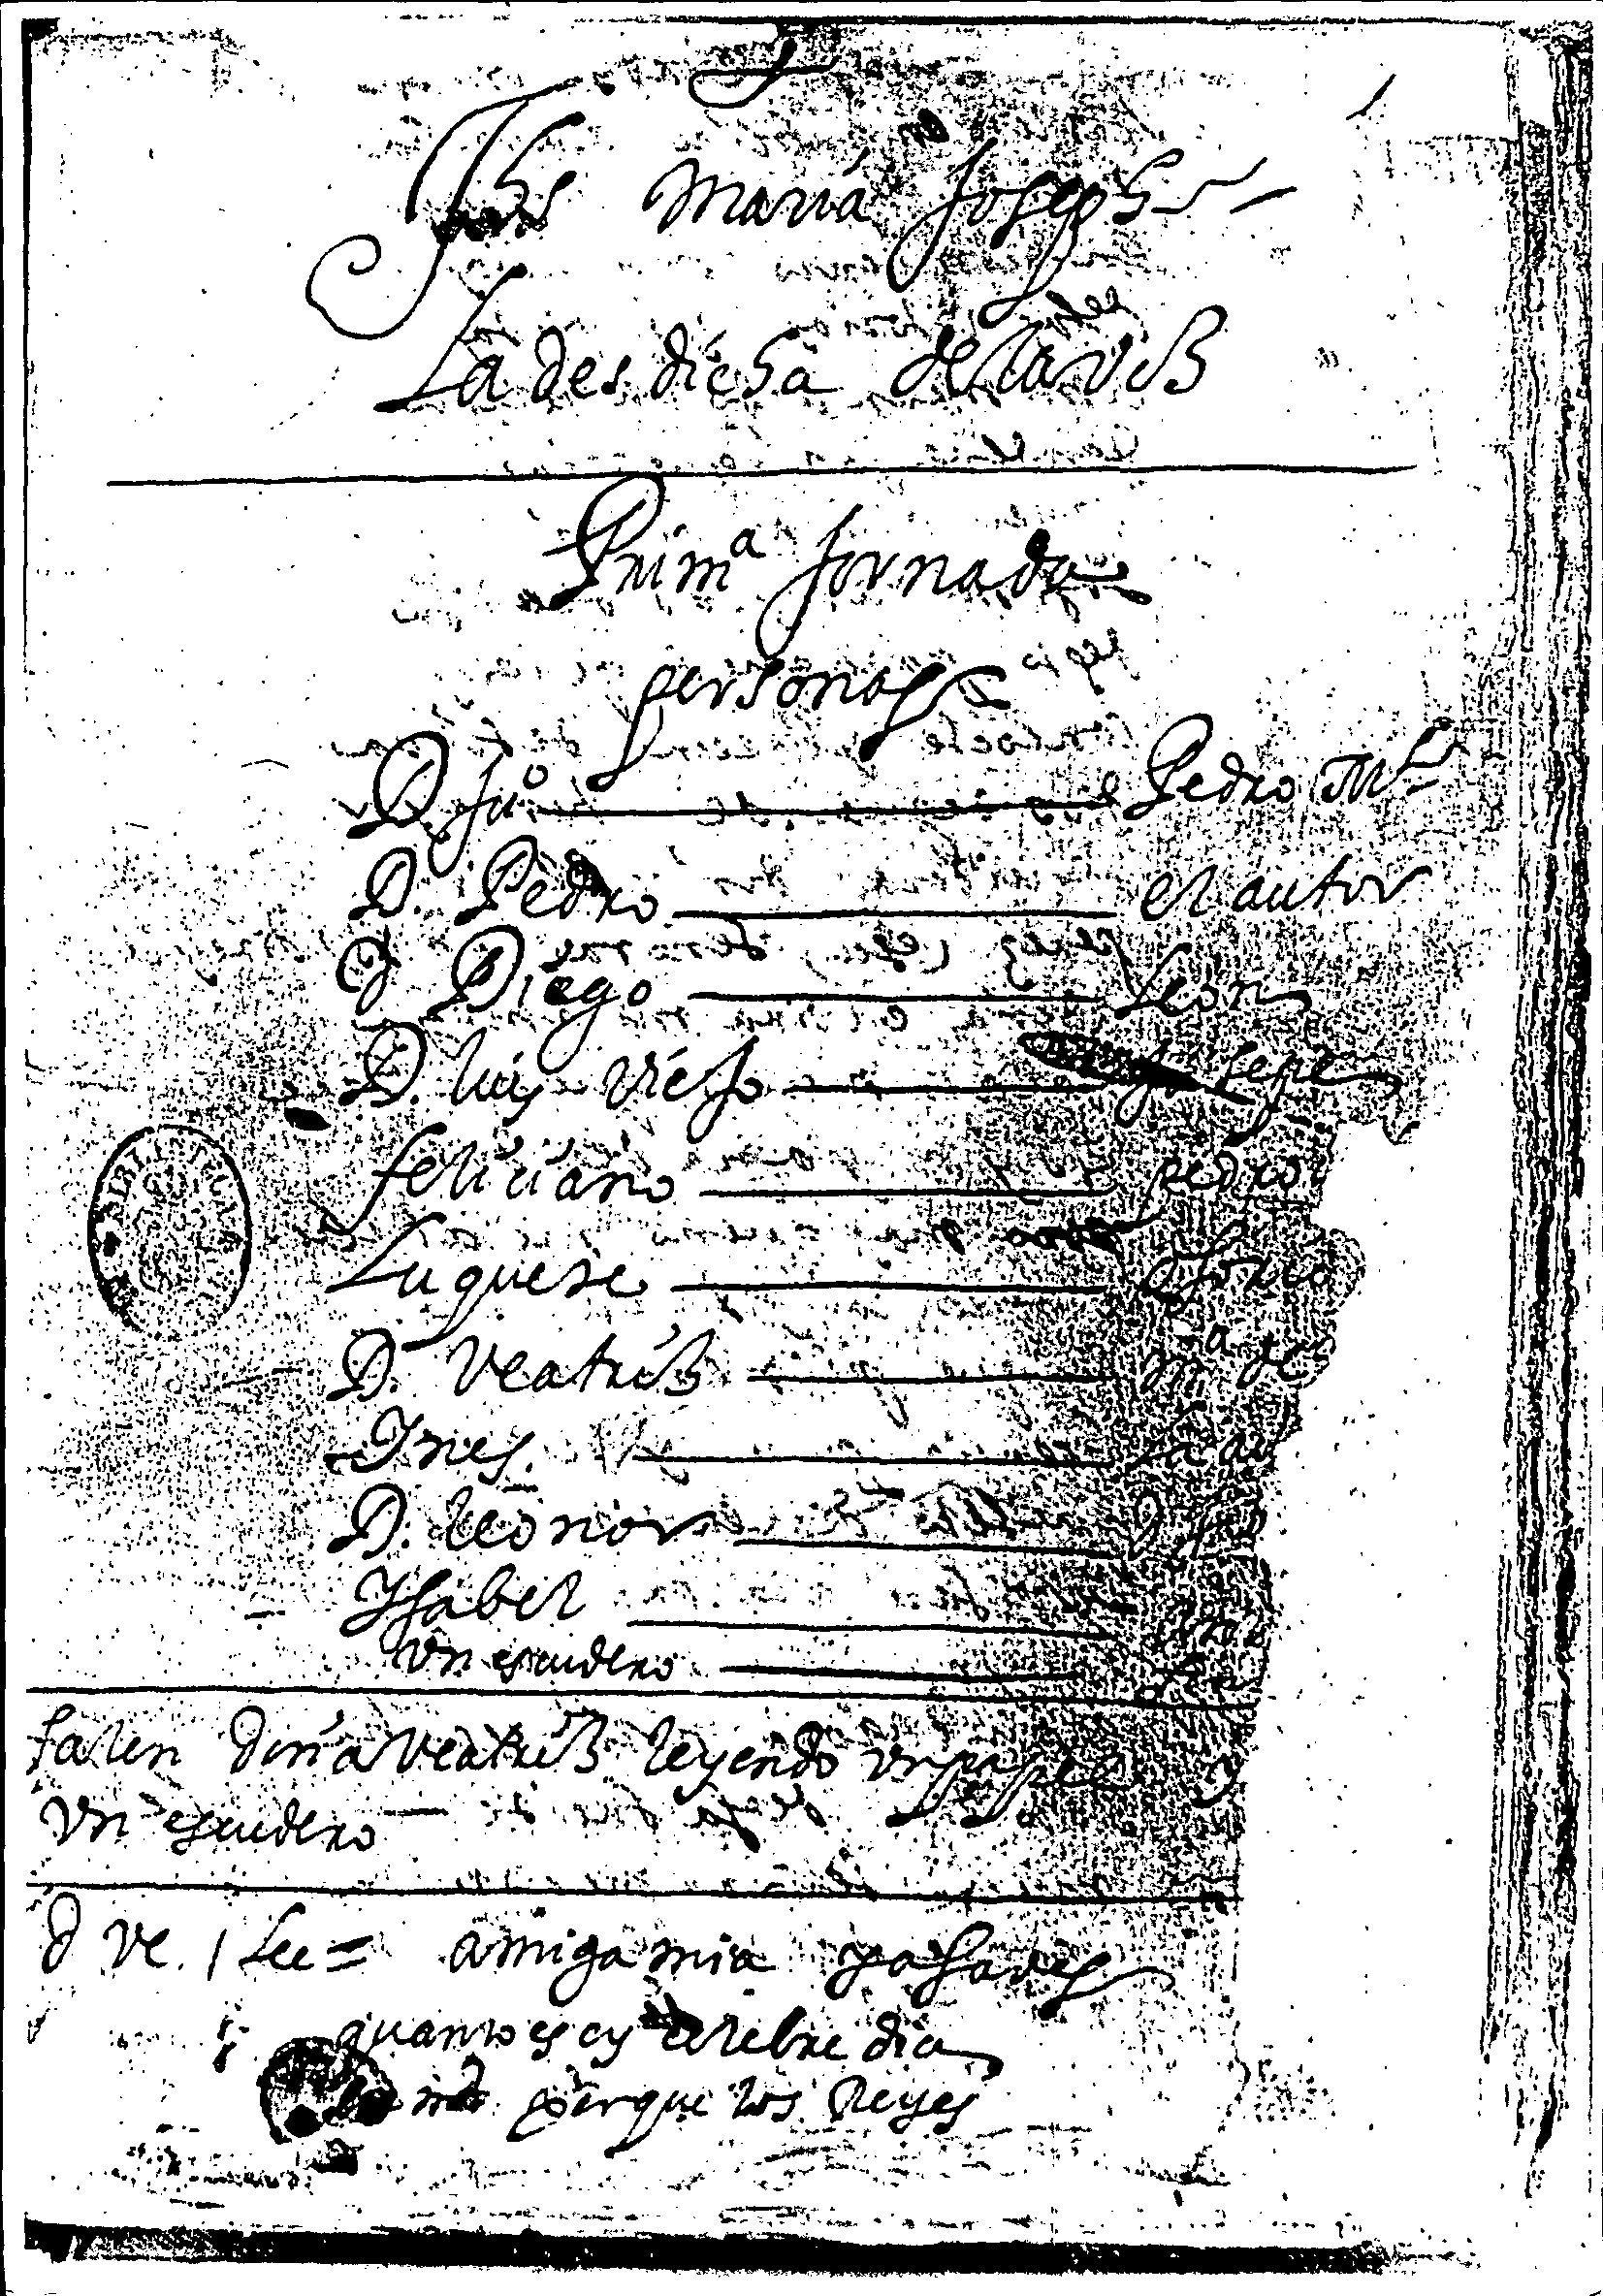 1
Jhs maria Joseph
La desdicha de la voz
Prim.ª Jornada
personas
D. Ju.º Pedro M.l
D. Pedro el autor
D. Diego Leon
D. luis viejo lepe
feliciano pedro
Luquete
D. veatriz m.ª de
Ynes.
D. leonor
Ysabel
Vn escudero
salen doña veatriz leyendo vn papel y
vn escudero
d ve. lee = amiga mia ya saves
quanto es oy celebre dia
porque los Reyes